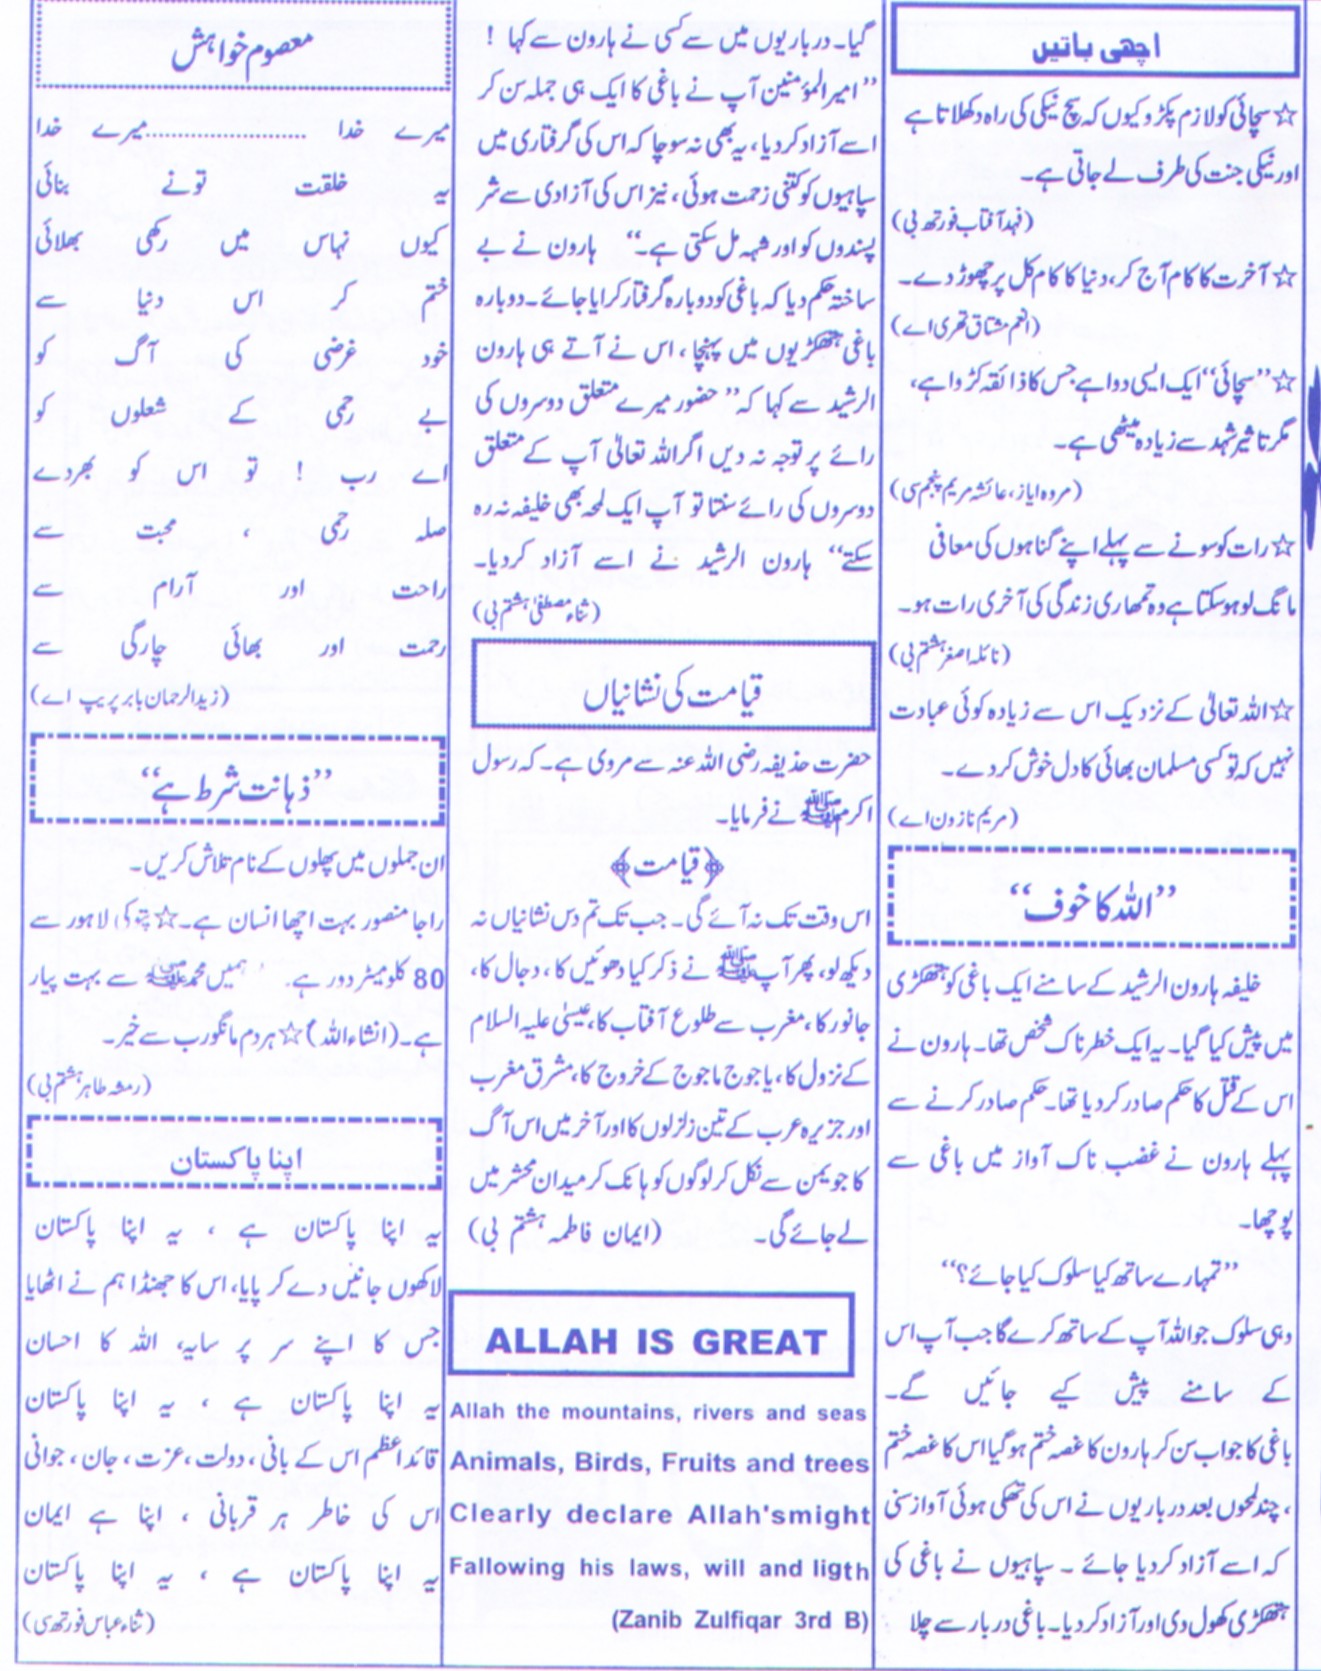 اچھی باتیں
☆ سچائی کو لازم پکڑو کیوں کہ سچ نیکی کی راہ دکھلاتا ہے
اور نیکی جنت کی طرف لے جاتی ہے۔
(فہد آفتاب فورتھ بی)
☆ آخرت کا کام آج کر، دنیا کا کام کل پر چھوڑ دے۔
(انعم مشتاق تھری اے)
☆ ”سچائی“ ایک ایسی دوا ہے جس کا ذائقہ کڑوا ہے،
مگر تاثیر شہد سے زیادہ میٹھی ہے۔
(مردہ ایاز، عائشہ مریم پنجم سی)
☆ رات کو سونے سے پہلے اپنے گناہوں کی معافی
مانگ لو ہوسکتا ہے وہ تمھاری زندگی کی آخری رات ہو۔
(نائلہ اصغر ہشتم بی)
☆ اللہ تعالیٰ کے نزدیک اس سے زیادہ کوئی عبادت
نہیں کہ تو کسی مسلمان بھائی کا دل خوش کردے۔
(مریم ناز ون اے)
”اللہ کا خوف“
خلیفہ ہارون الرشید کے سامنے ایک باغی کو ہتھکڑی
میں پیش کیا گیا۔ یہ ایک خطرناک شخص تھا۔ ہارون نے
اس کے قتل کا حکم صادر کردیا تھا۔ حکم صادر کرنے سے
پہلے ہارون نے غضب ناک آواز میں باغی سے
پوچھا۔
”تمہارے ساتھ کیا سلوک کیا جائے؟“
وہی سلوک جو اللہ آپ کے ساتھ کرے گا جب آپ اس
کے سامنے پیش کیے جائیں گے۔
باغی کا جواب سن کر ہارون کا غصہ ختم ہوگیا اس کا غصہ ختم
، چند لمحوں بعد درباریوں نے اس کی تھکی ہوئی آواز سنی
کہ اسے آزاد کردیا جائے ۔ سپاہیوں نے باغی کی
ہتھکڑی کھول دی اور آزاد کردیا۔ باغی دربار سے چلا
گیا۔ درباریوں میں سے کسی نے ہارون سے کہا !
”امیرالمؤمنین آپ نے باغی کا ایک ہی جملہ سن کر
اسے آزاد کردیا، یہ بھی نہ سوچا کہ اس کی گرفتاری میں
سپاہیوں کو کتنی زحمت ہوئی، نیز اس کی آزادی سے شر
پسندوں کو اور شہہ مل سکتی ہے۔“ ہارون نے بے
ساختہ حکم دیا کہ باغی کو دوبارہ گرفتار کرایا جائے۔ دوبارہ
باغی ہتھکڑیوں میں پہنچا، اس نے آتے ہی ہارون
الرشید سے کہا کہ ”حضور میرے متعلق دوسروں کی
رائے پر توجہ نہ دیں اگر اللہ تعالیٰ آپ کے متعلق
دوسروں کی رائے سنتا تو آپ ایک لمحہ بھی خلیفہ نہ رہ
سکتے“ ہارون الرشید نے اسے آزاد کردیا۔
(ثناء مصطفیٰ ہشتم بی)
قیامت کی نشانیاں
حضرت حذیفہ رضی اللہ عنہ سے مروی ہے۔ کہ رسول
اکرم ﷺ نے فرمایا۔
﴿قیامت﴾
اس وقت تک نہ آئے گی۔ جب تک تم دس نشانیاں نہ
دیکھ لو، پھر آپ ﷺ نے ذکر کیا دھوئیں کا، دجال کا،
جانور کا، مغرب سے طلوع آفتاب کا، عیسیٰ علیہ السلام
کے نزول کا، یاجوج ماجوج کے خروج کا، مشرق مغرب
اور جزیرہ عرب کے تین زلزلوں کا اور آخر میں اس آگ
کا جو یمن سے نکل کر لوگوں کو ہانک کر میدان محشر میں
لے جائے گی۔ (ایمان فاطمہ ہشتم بی)
ALLAH IS GREAT
Allah the mountains, rivers and seas
Animals, Birds, Fruits and trees
Clearly declare Allah'smight
Fallowing his laws, will and ligth
(Zanib Zulfiqar 3rd B)
معصوم خواہش
میرے خدا ......................میرے خدا
یہ خلقت تونے بنائی
کیوں نہاس میں رکھی بھلائی
ختم کر اس دنیا سے
خود غرضی کی آگ کو
بے رحمی کے شعلوں کو
اے رب ! تو اس کو بھردے
صلہ رحمی ، محبت سے
راحت اور آرام سے
رحمت اور بھائی چارگی سے
(زید الرحمان بابر پریپ اے)
”ذہانت شرط ہے“
ان جملوں میں پھلوں کے نام تلاش کریں۔
راجا منصور بہت اچھا انسان ہے۔☆ پتوکی لاہور سے
80 کلومیٹر دور ہے. ہمیں محمد ﷺ سے بہت پیار
ہے۔(انشاء اللہ) ☆ ہردم مانگو رب سے خیر۔
(رمشہ طاہر ہشتم بی)
اپنا پاکستان
یہ اپنا پاکستان ہے ، یہ اپنا پاکستان
لاکھوں جانیں دے کر پایا، اس کا جھنڈا ہم نے اٹھایا
جس کا اپنے سر پر سایہ، اللہ کا احسان
یہ اپنا پاکستان ہے ، یہ اپنا پاکستان
قائداعظم اس کے بانی، دولت، عزت، جان، جوانی
اس کی خاطر ہر قربانی ، اپنا ہے ایمان
یہ اپنا پاکستان ہے ، یہ اپنا پاکستان
(ثناء عباس فورتھ ڈی)